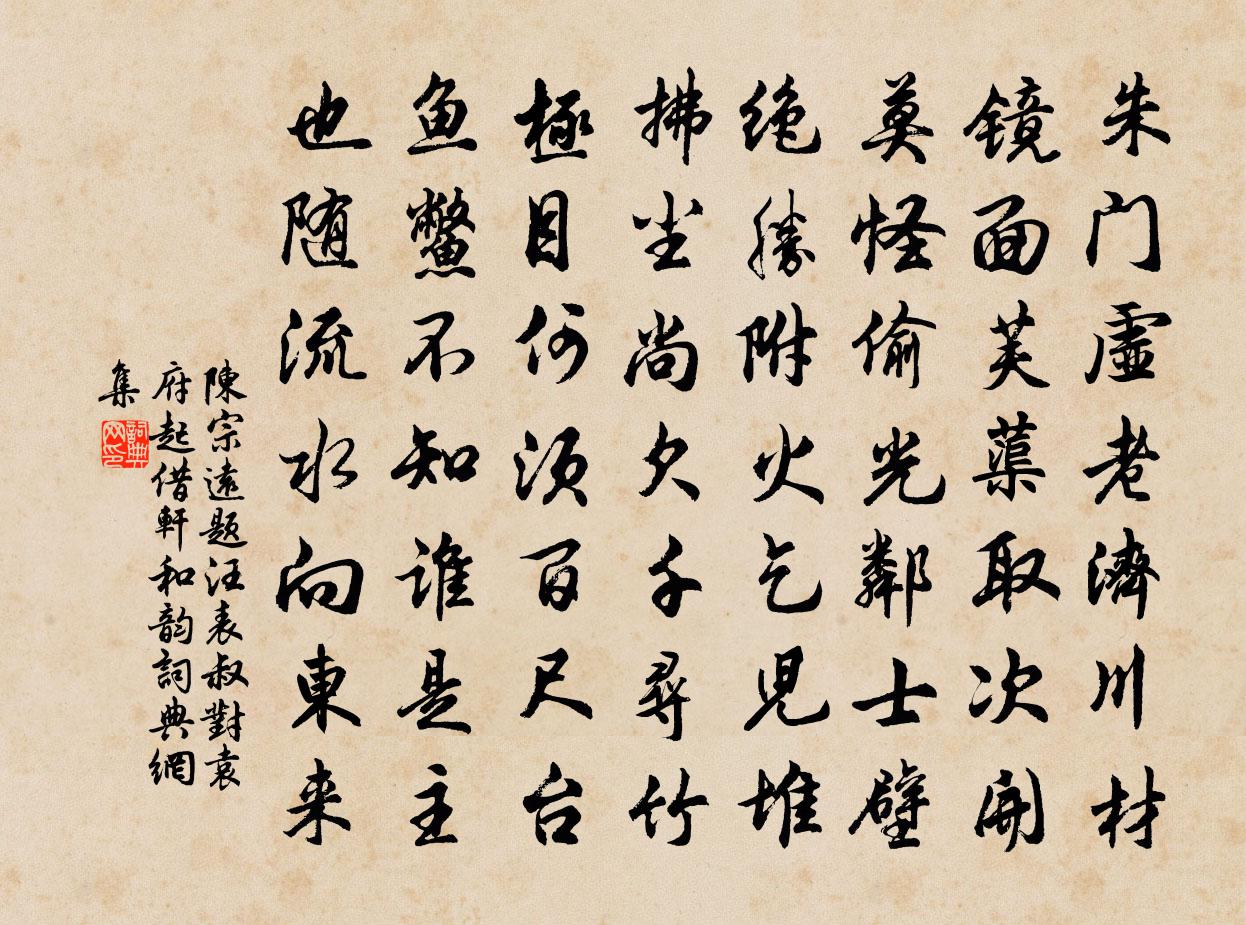 朱门虚老濟川材
镜面芙蕖取次開
莫怪偷光鄰士壁
绝勝附火乞児堆
拂尘尚欠千尋竹
極目何须百尺台
鱼鳖不知谁是主
也随流水向東来
陳宗遠题汪表叔對袁
府起借軒和韵詞典網
集
詞典
网印